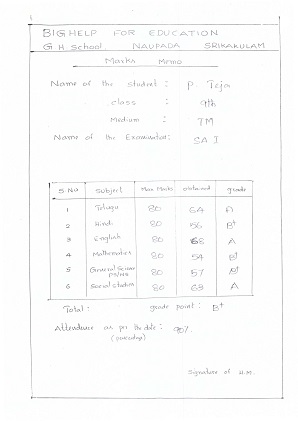 BIG HELP FOR EDUCATION
G.H. School. NAUPADA SRIKAKULAM
Marks Memo
Name of the student : P. Teja
class : 9th
Medium : TM
Name of the Examination: SA I
S.No Subject Max Marks obtained grade
1 Telugu 80 64 A
2 Hindi 80 56 B+
3 English 80 68 A
4 Mathematics 80 54 B+
5 General Science 80 57 B+
PS/NS
6 Social studies 80 69 A
Total: grade point: B+
Attendance as per the date: 90%
Signature of H.M.